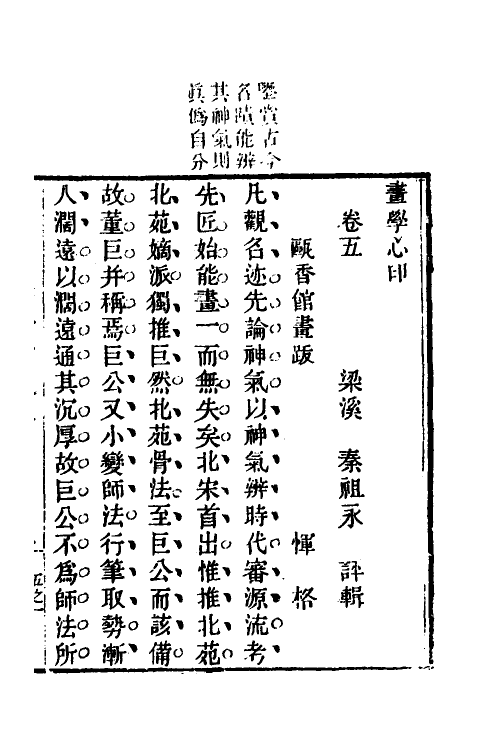 鑒賞古今
名蹟能辨
其神氣則
眞僞自分
畫學心印
卷五 梁溪 秦祖永 評輯
甌香館畫跋 惲格
凡觀名迹先論神氣以神氣辨時代審源流考
先匠始能畫一而無失矣北宋首出惟推北苑
北苑嫡派獨推巨然北苑骨法至巨公而該備
故董巨并稱焉巨公又小變師法行筆取勢漸
入濶遠以濶遠通其沉厚故巨公不爲師法所
五之一